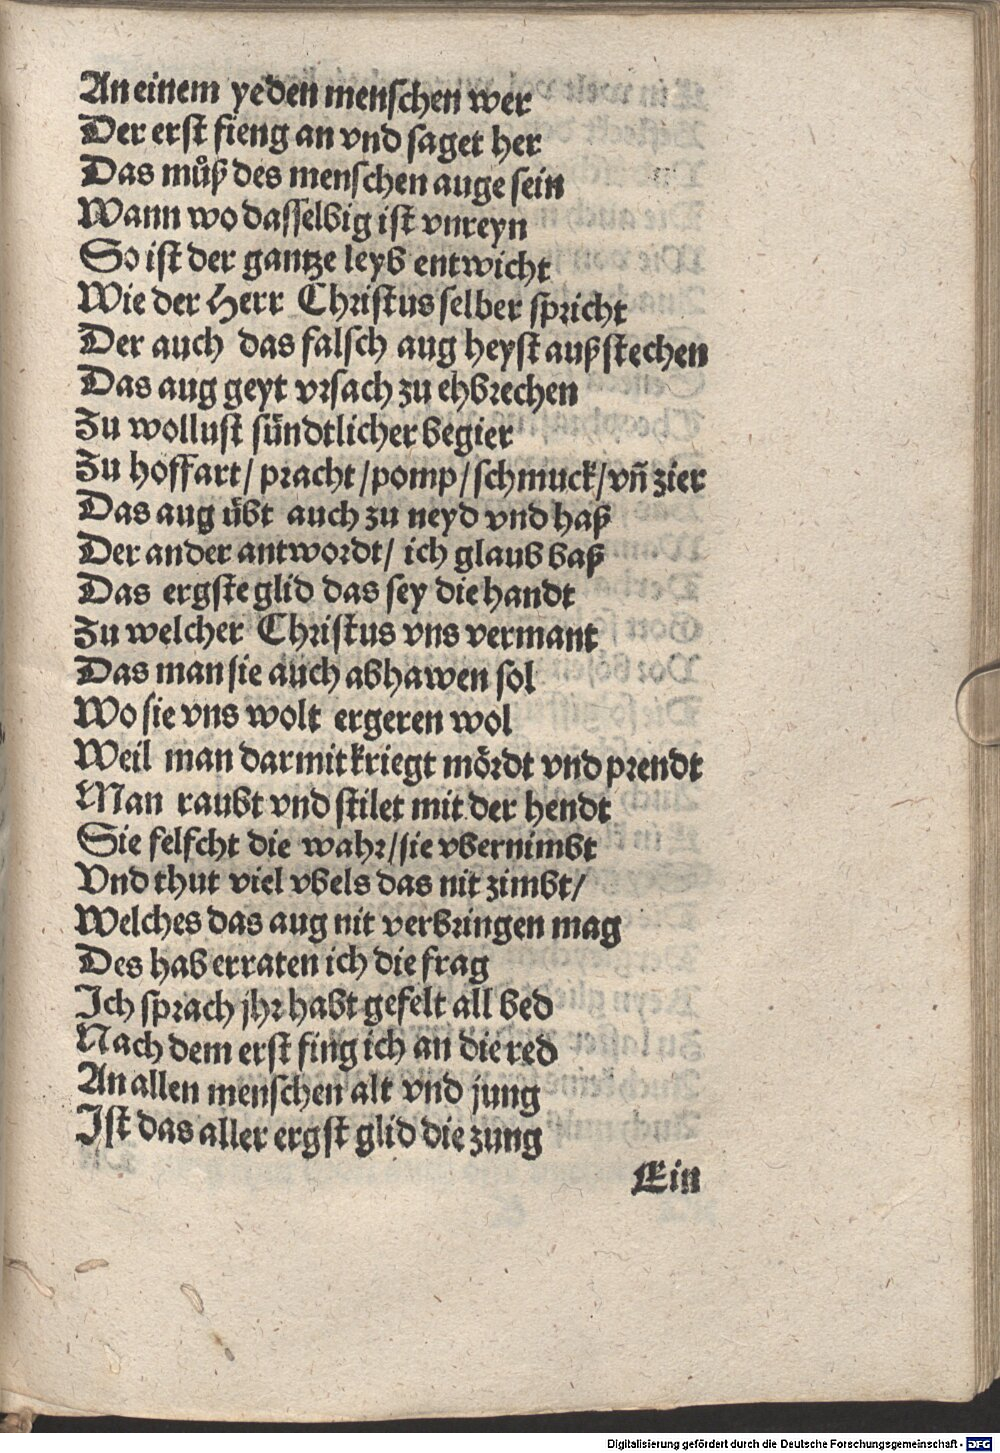 An einem yeden menschen wer
Der erst fieng an vnd saget her
Das můß des menschen auge sein
Wann wo dasselbig ist vnreyn
So ist der gantze leyb entwicht
Wie der Herr Christus selber spricht
Der auch das falsch aug heyst außstechen
Das aug geyt vrsach zu ehbrechen
Zu wollust sündtlicher begier
Zu hoffart/ pracht/pomp/schmuck/vñ zier
Das aug übt auch zu neyd vnd haß
Der ander antwordt/ ich glaub baß
Das ergste glid das sey die handt
Zu welcher Christus vns vermant
Das man sie auch abhawen sol
Wo sie vns wolt ergeren wol
Weil man darmit kriegt mördt vnd prendt
Man raubt vnd stilet mit der hendt
Sie felfcht die wahr/sie vbernimbt
Vnd thut viel vbels das nit zimbt/
Welches das aug nit verbringen mag
Des hab erraten ich die frag
Ich sprach jhr habt gefelt all bed
Nach dem erst fing ich an die red
An allen menschen alt vnd jung
Ist das aller ergst glid die zung
Ein
Digitalisierung gefördert durch die Deutsche Forschungsgemeinschaft - DFG